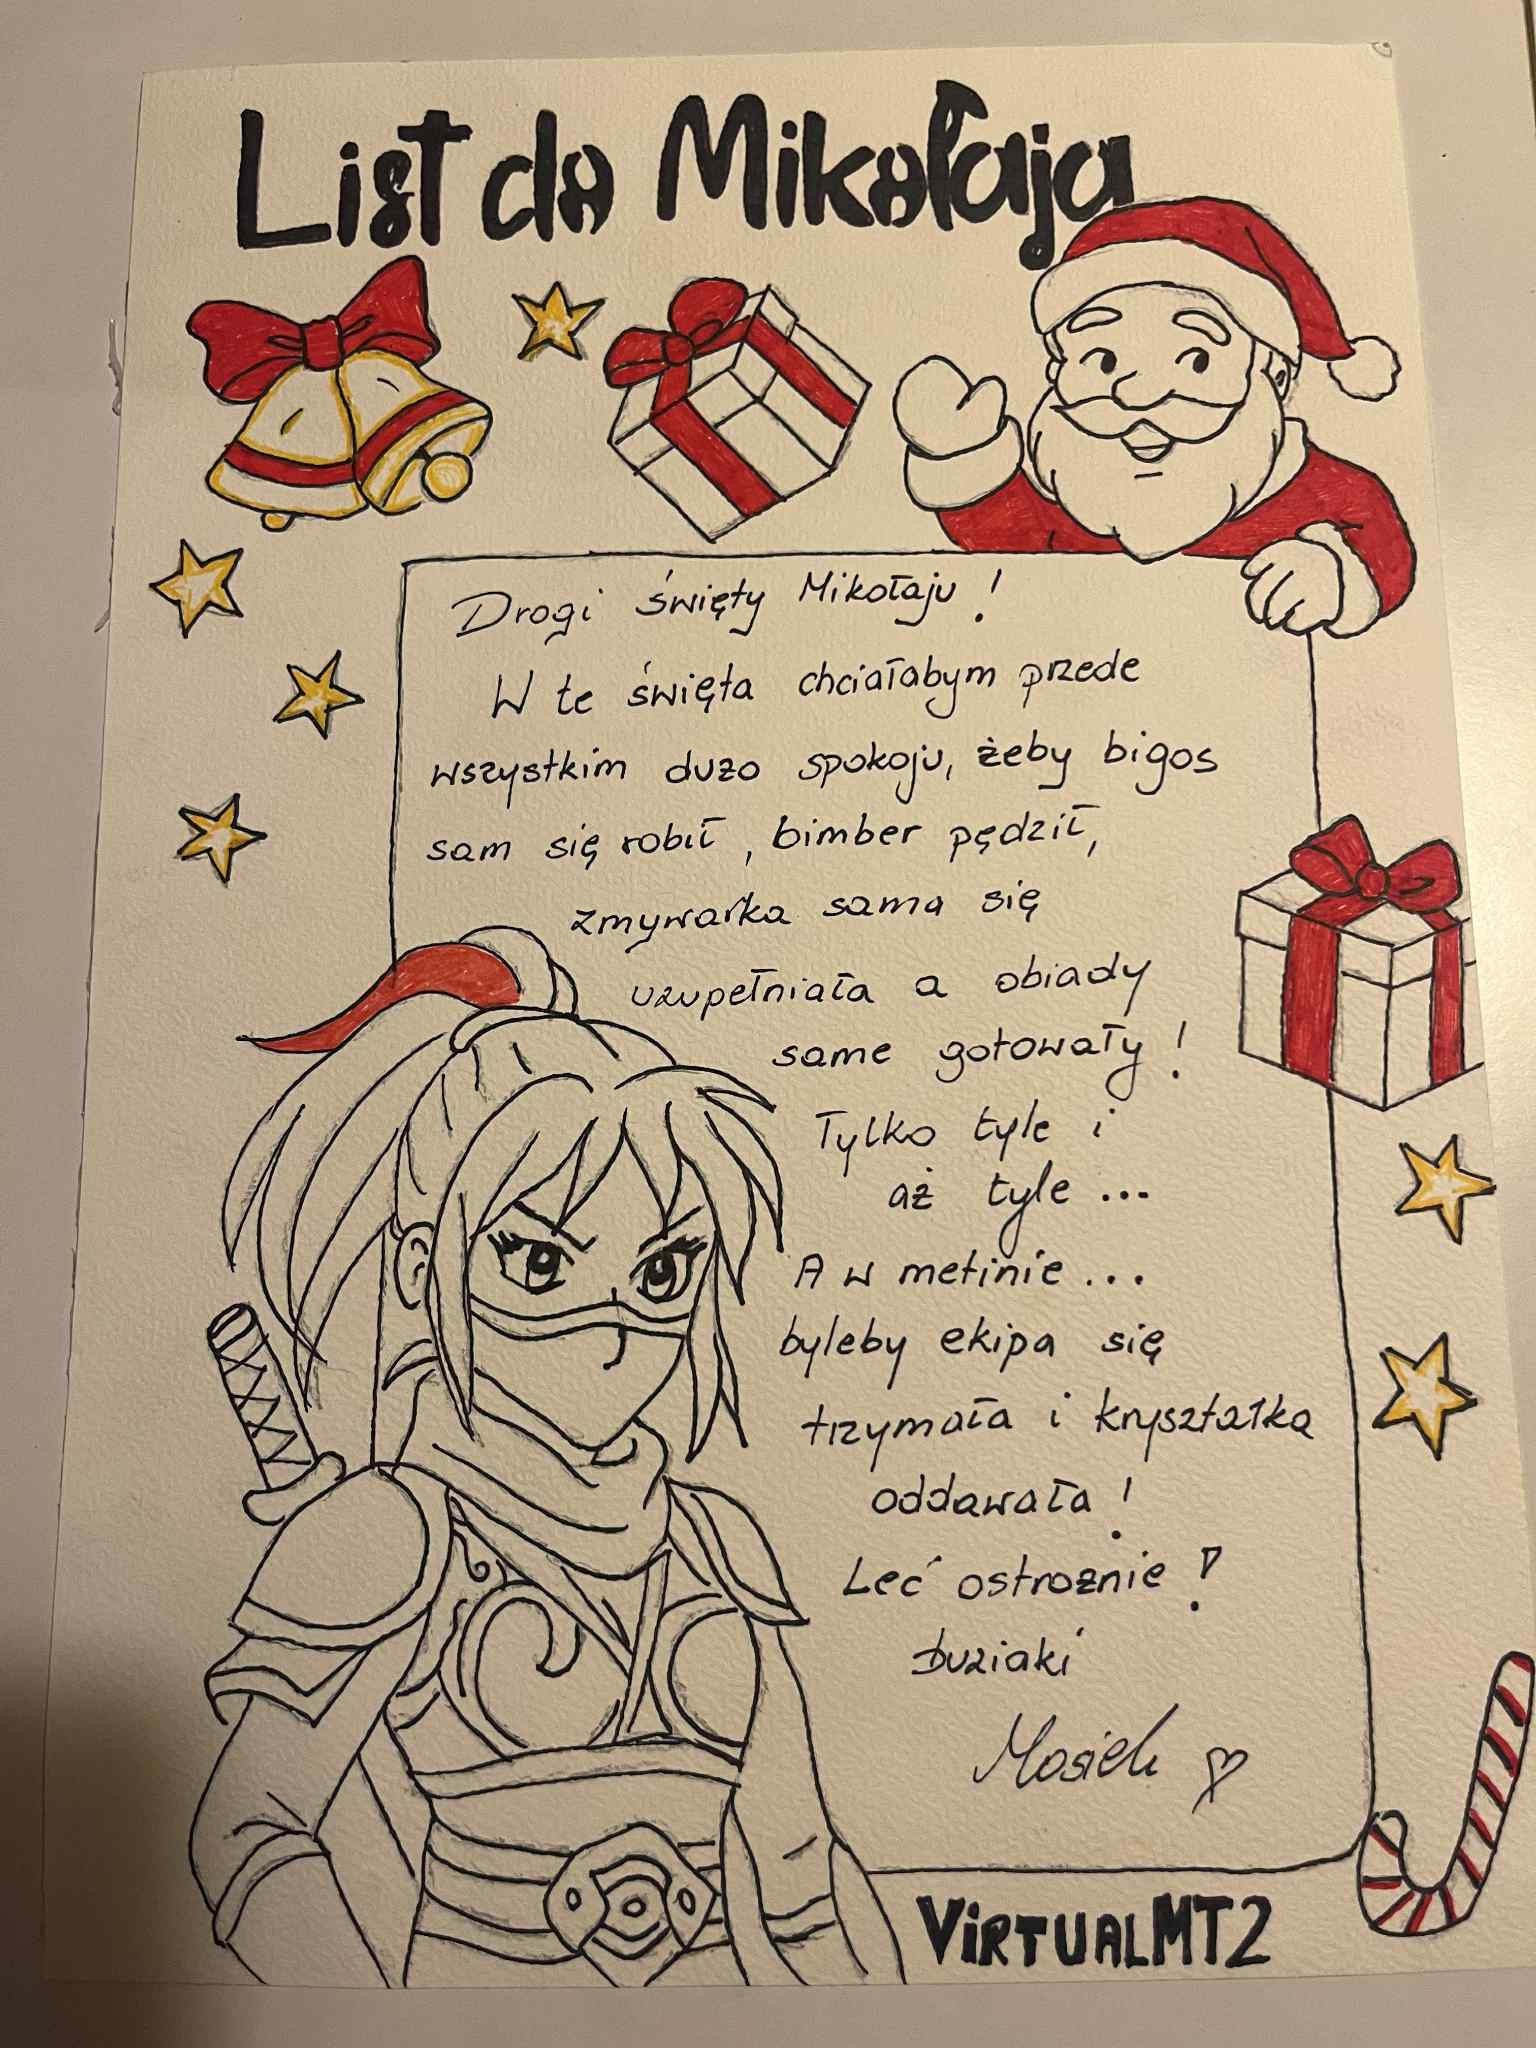 List do Mikołaja
Drogi święty Mikołaju!
W te święta chciałabym przede
wszystkim dużo spokoju, żeby bigos
sam się robił, bimber pędził,
zmywarka sama się
uzupełniała a obiady
same gotowały!
Tylko tyle i
aż tyle...
A w metinie...
byleby ekipa się
trzymała i kryształka
oddawała!
Leć ostrożnie!
Buziaki
Mosiek
VirtualMT2